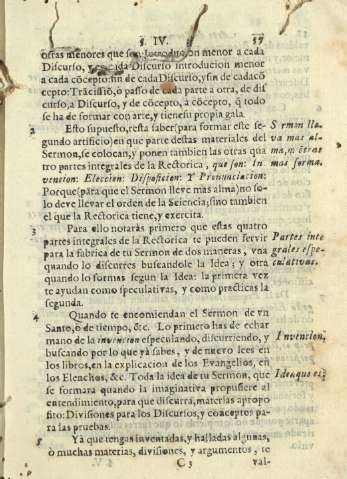 §. IV. 37
otras menores que son Introducion menor a cada
Discurso, y a cada Discurso introducion menor
a cada cõcepto: fin de cada Discurso, y fin de cada cõ
cepto: Trãsitiõ, ò passo de cada parte a otra, de dis
curso, a Discurso, y de cõcepto, a cõcepto, q̃ todo
se ha de formar con arte, y tiene su propia gala.
2 Esto supuesto, resta saber (para formar este se-
gundo artificio) en que parte destas materiales del
Sermon, se colocan, y ponen tambien las otras qua
tro partes integrales de la Rectorica, que son: In
vencion: Eleccion: Disposicion: Y Pronunciacion:
Porque (para que el Sermon lleve mas alma) no so-
lo deve llevar el orden de la Sciencia; sino tambien
el que la Rectorica tiene, y exercita.
Sermon lle
va mas al-
ma, en otras
mas forma.
3 Para ello notaràs primero que estas quatro
partes integrales de la Rectorica te pueden servir
para la fabrica de tu Sermon de dos maneras, vna
quando lo discurres buscandole la Idea: y otra
quando lo formas segun la Idea: la primera vez
te ayudan como speculativas, y como practicas la
segunda.
Partes inte
grales espe-
culativas.
4 Quando te encomiendan el Sermon de vn
Santo, ò de tiempo, &c. Lo primero has de echar
mano de la invencion especulando, discurriendo, y
buscando por lo que yà sabes, y de nuevo lees en
los libros, en la explicacion de los Evangelios, en
los Elenchos, &c. Toda la idea de tu Sermon, que
se formarà quando la imaginativa propusiere al
entendimiento, para que discurra, materias a propo
sito: Divisiones para los Discursos, y conceptos pa-
ra las pruebas.
Invencion,
Idea que es,
5 Yà que tengas inventadas, y halladas algunas,
ò muchas materias, divisiones, y argumentos, te
C 3 val-